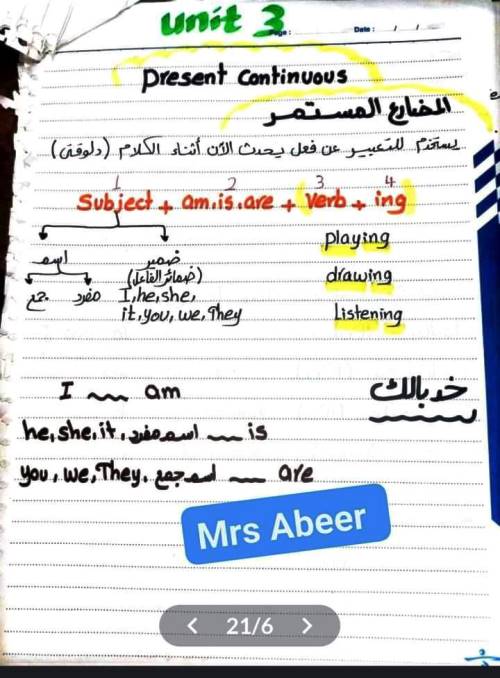 unit 3
Page : Date : / /
Present Continuous
المضارع المستمر
يستخدم للتعبير عن فعل يحدث الآن أثناء الكلام (دلوقتى)
1 2 3 4
Subject + am.is.are + Verb + ing
playing
اسم ضمير
(ضمائر الفاعل)
drawing
جمع مفرد I, he, she,
it, you, we, They
Listening
I am
خد بالك
he, she, it, اسم مفرد is
you, we, They, اسم جمع are
Mrs Abeer
< 21/6 >